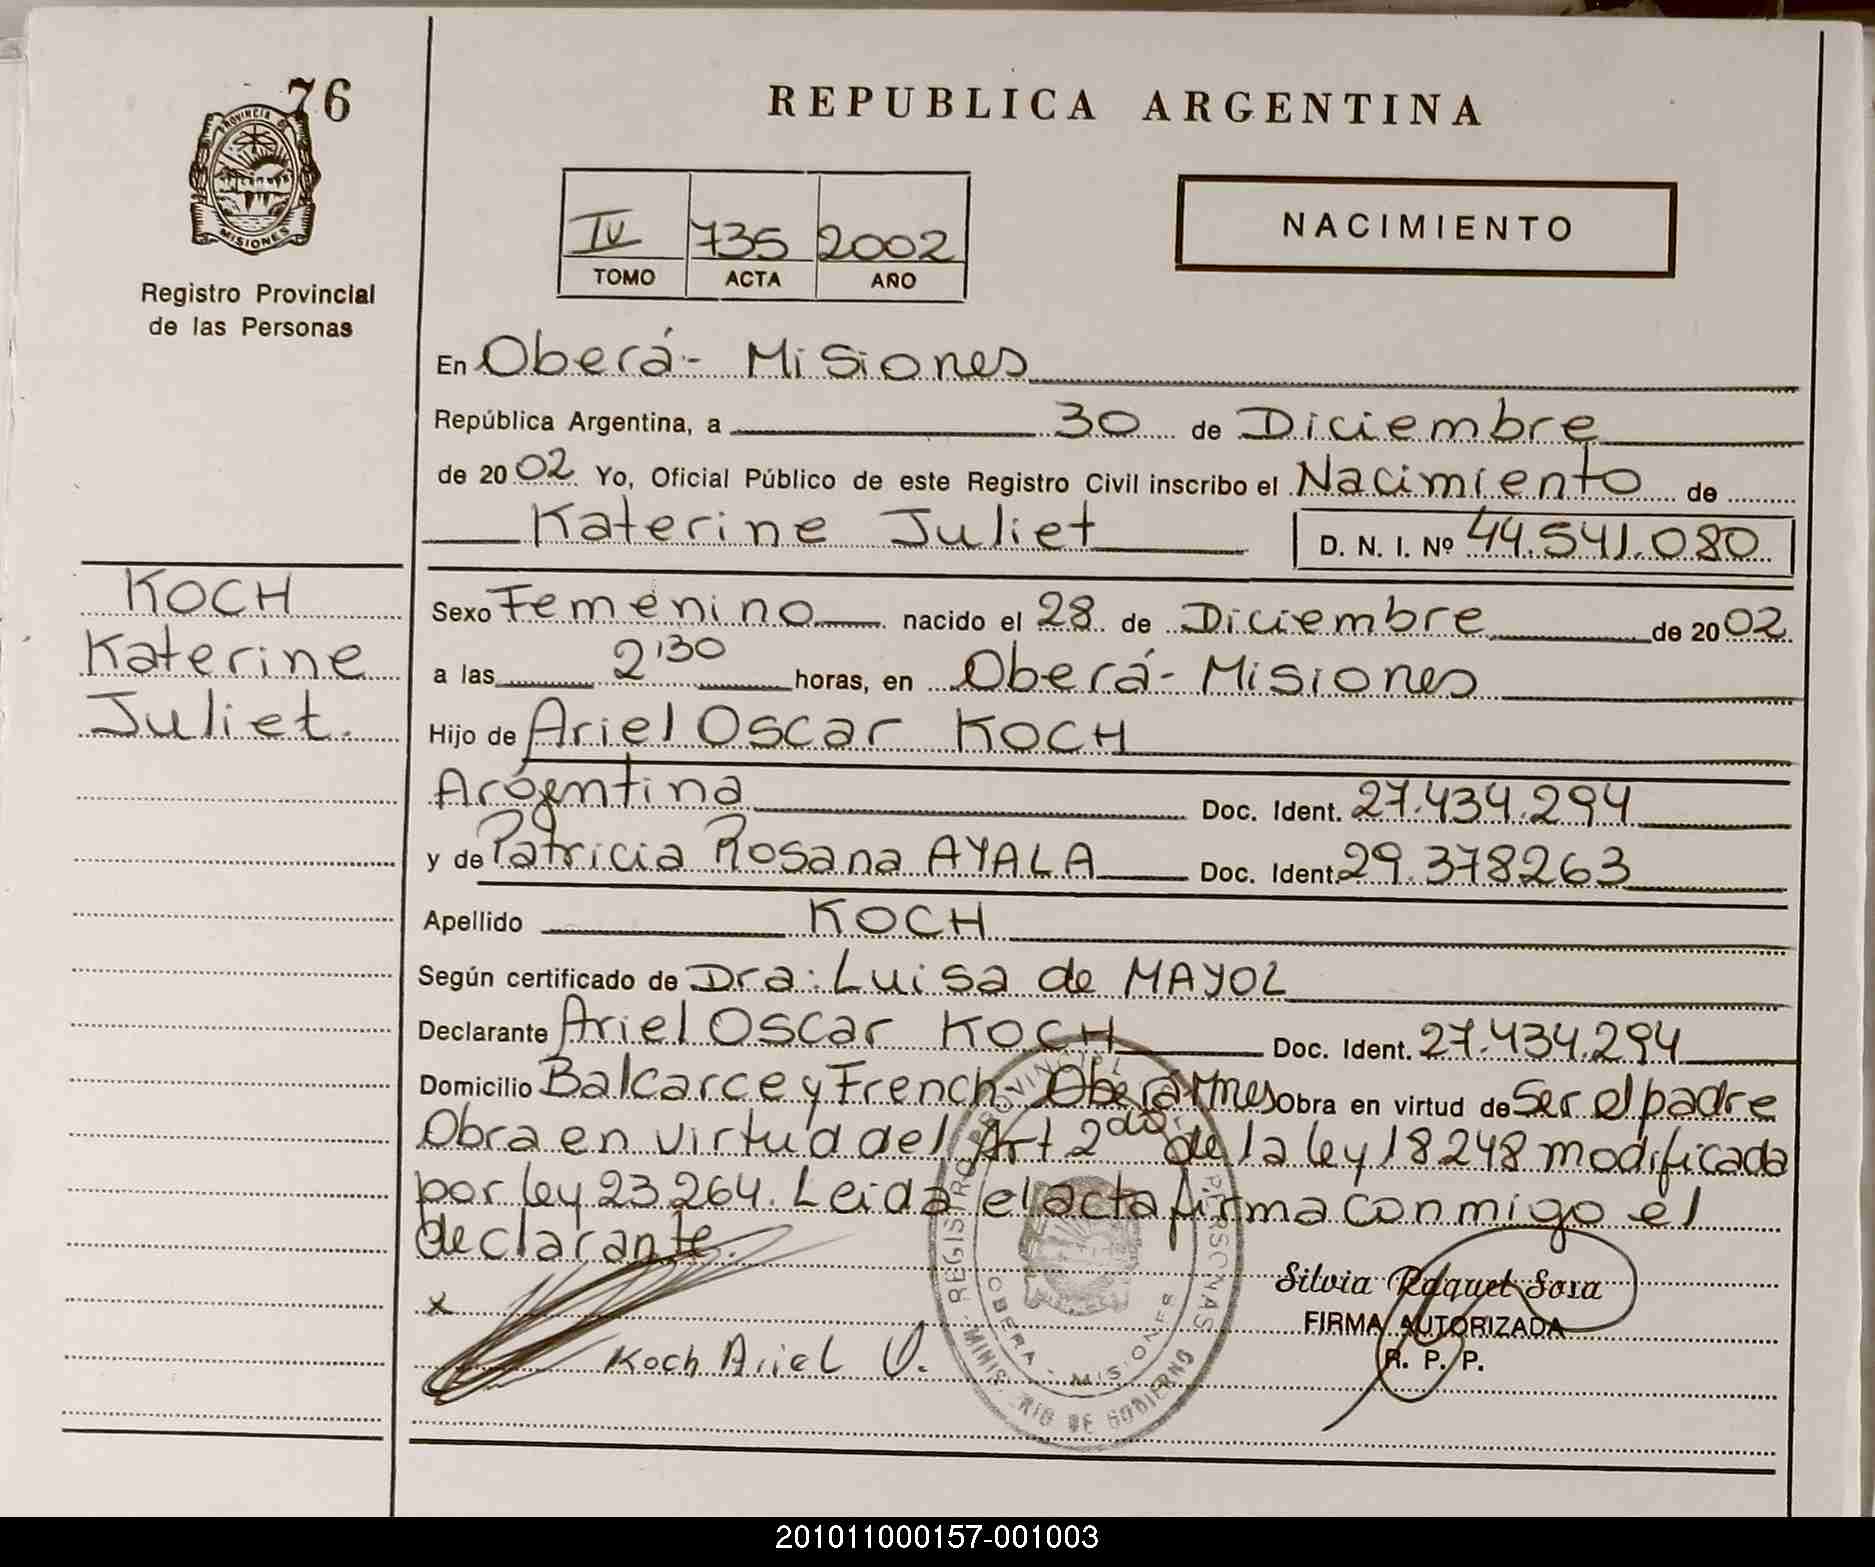 76
PROVINCIA DE
MISIONES
Registro Provincial
de las Personas
REPUBLICA ARGENTINA
IV 735 2002
TOMO ACTA AÑO
NACIMIENTO
En Oberá - Misiones
República Argentina, a 30 de Diciembre
de 2002 Yo, Oficial Público de este Registro Civil inscribo el Nacimiento de
Katerine Juliet D. N. I. Nº 44.541.080
KOCH
Katerine
Juliet.
Sexo Femenino nacido el 28 de Diciembre de 2002
a las 2'30 horas, en Oberá - Misiones
Hijo de Ariel Oscar KOCH
Argentina Doc. Ident. 27.434.294
y de Patricia Rosana AYALA Doc. Ident. 29.378263
Apellido KOCH
Según certificado de Dra: Luisa de MAYOL
Declarante Ariel Oscar KOCH Doc. Ident. 27.434.294
Domicilio Balcarce y French - Oberá Mnes Obra en virtud de Ser el padre
Obra en virtud del Art 2do de la ley 18248 modificada
por ley 23.264. Leida el acta firma conmigo el
declarante.
x
Koch Ariel O.
Silvia Raquel Sosa
FIRMA AUTORIZADA
R. P. P.
REGISTRO PROVINCIAL PERSONAS
OBERA - MISIONES
MINISTERIO DE GOBIERNO
201011000157-001003